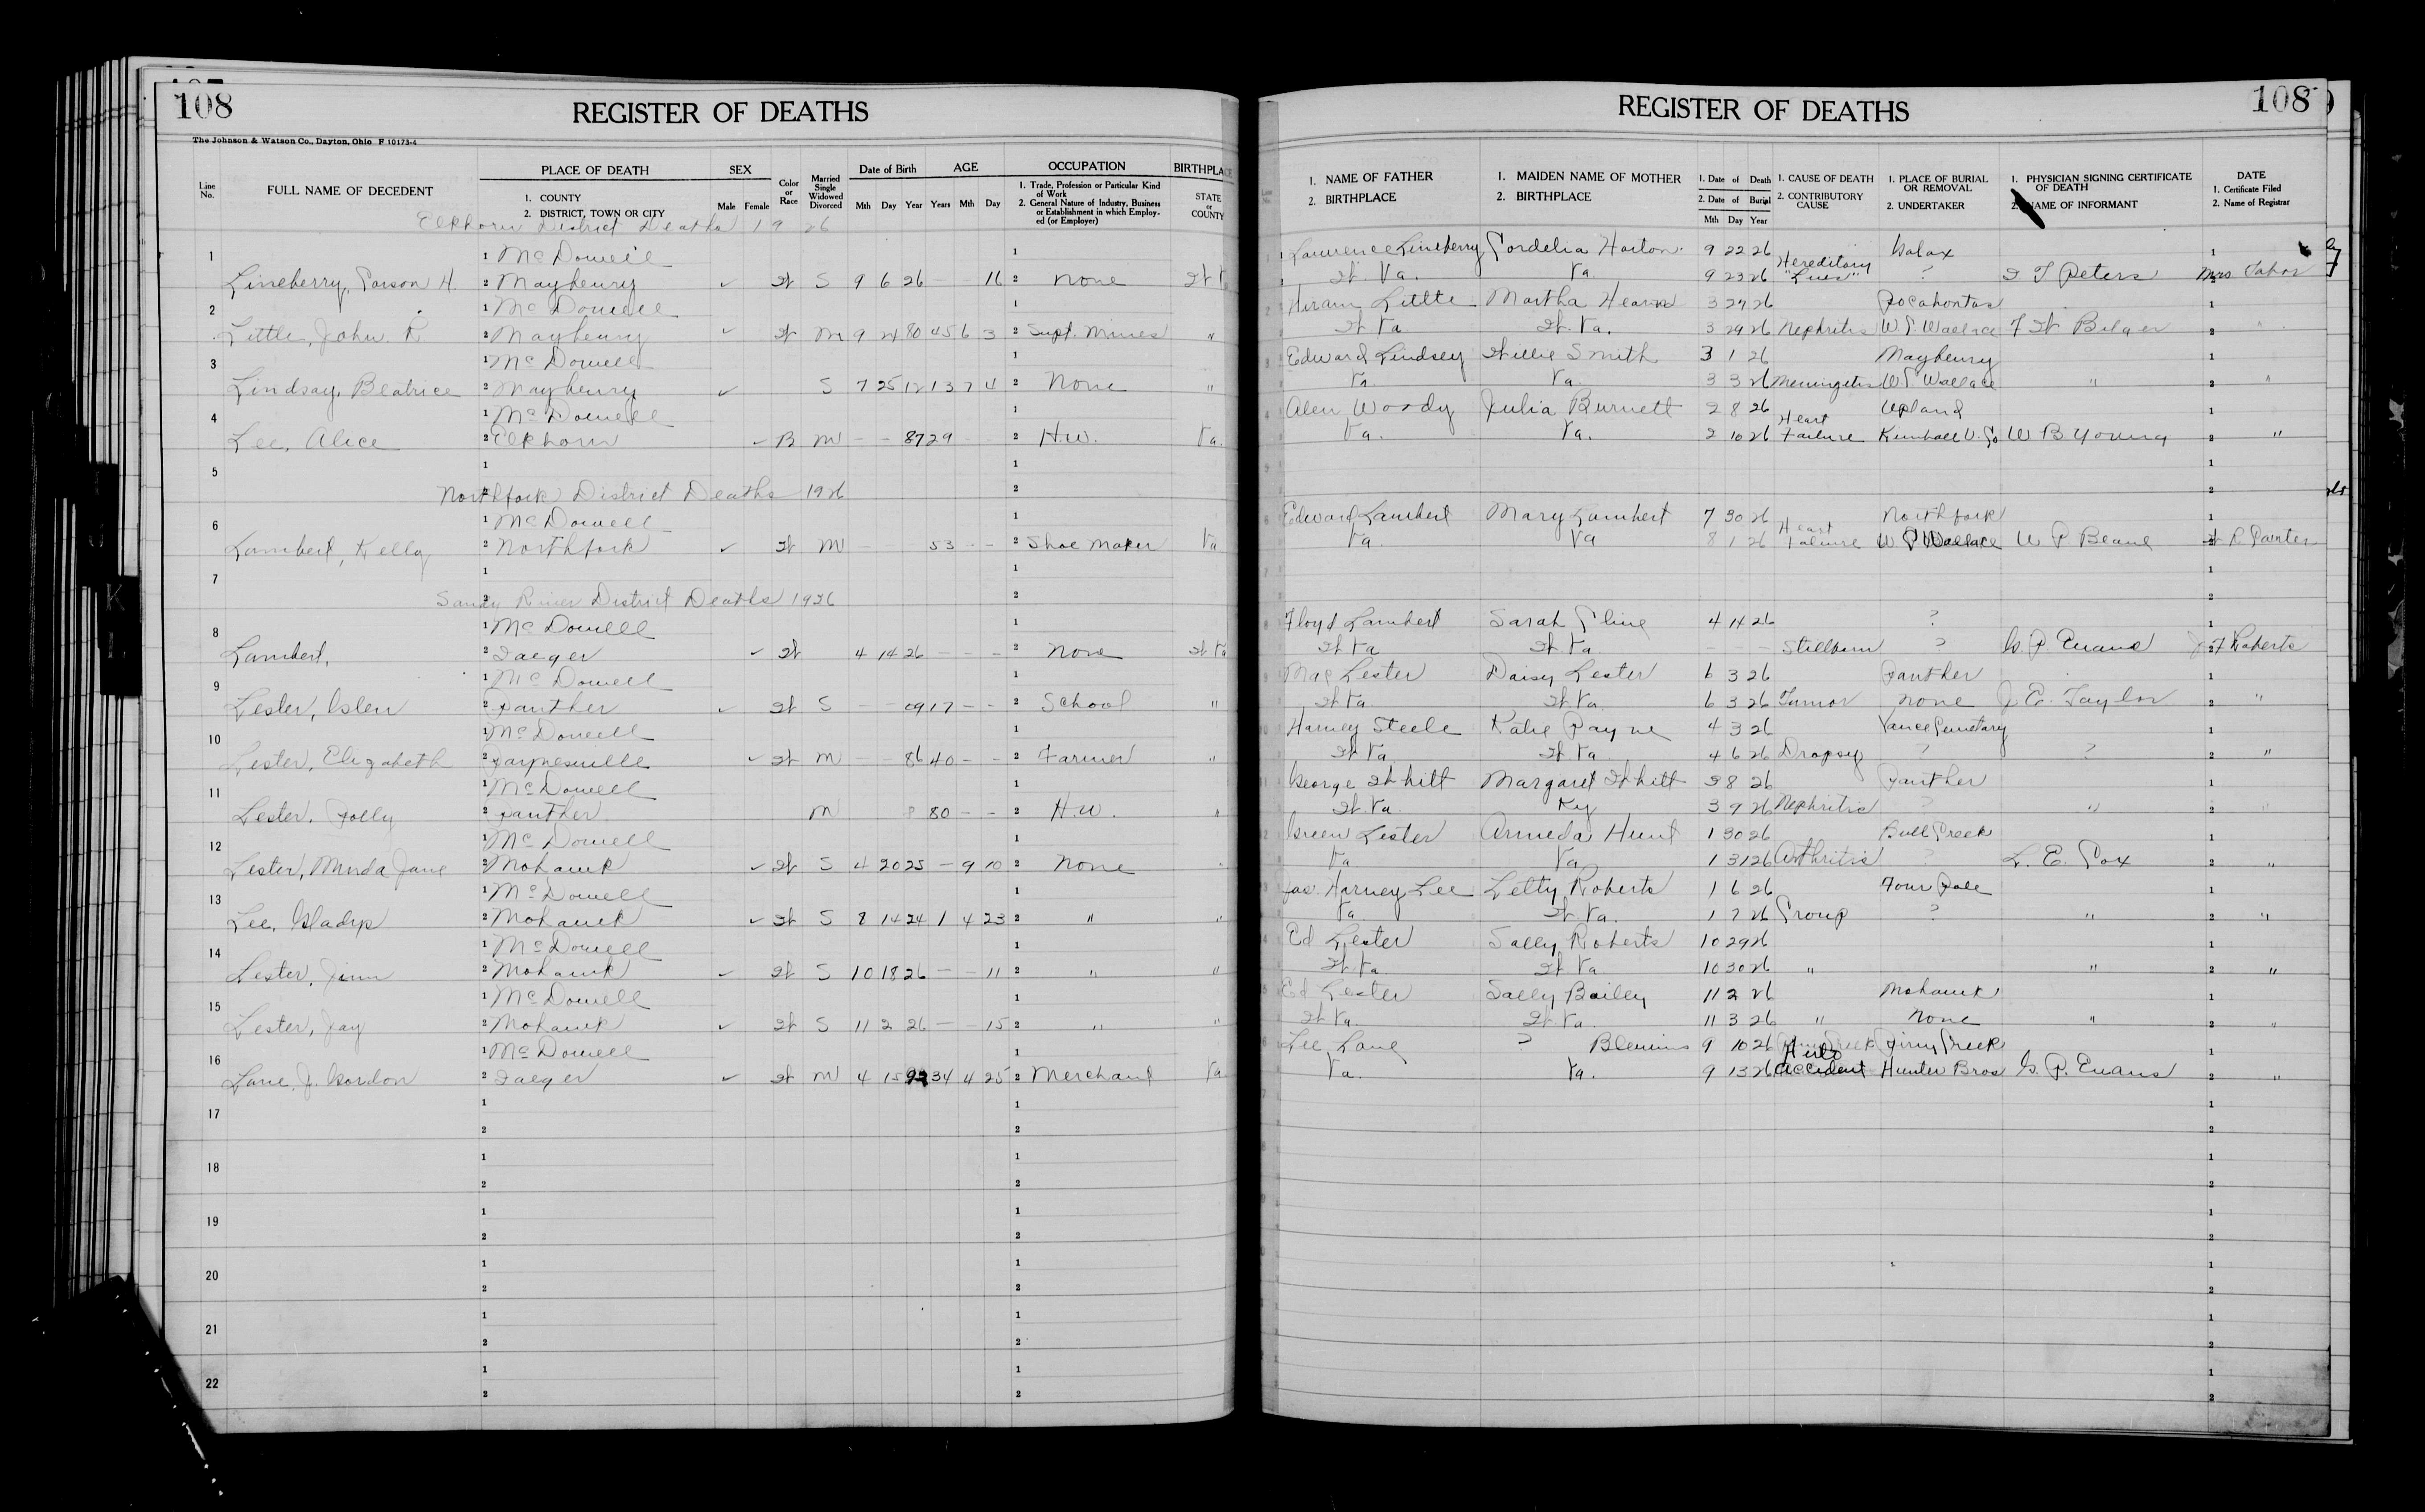 108
REGISTER OF DEATHS
The Johnson & Watson Co., Dayton, Ohio F 10173-4
Line No.
FULL NAME OF DECEDENT
PLACE OF DEATH
1. COUNTY
2. DISTRICT, TOWN OR CITY
SEX
Male Female
Color or Race
Married Single Widowed Divorced
Date of Birth
Mth Day Year
AGE
Years Mth Day
OCCUPATION
1. Trade, Profession or Particular Kind of Work
2. General Nature of Industry, Business or Establishment in which Employed (or Employer)
BIRTHPLACE
STATE or COUNTY
Elkhorn District Deaths 1926
1 1 McDowell 1
Lineberry, Carson H 2 Maybeury ✓ W S 9 6 26 — — 16 2 None W Va
2 1 McDowell 1
Little, John R 2 Maybeury ✓ W M 9 24 80 45 6 3 2 Supt. Mines "
3 1 McDowell 1
Lindsay, Beatrice 2 Maybeury ✓ S 7 25 12 13 7 4 2 None "
4 1 McDowell 1
Lee, Alice 2 Elkhorn ✓ B M — — 87 29 2 H.W. Va.
5 1 1
Northfork District Deaths 1926 2
6 1 McDowell 1
Lambert, Kelly 2 Northfork ✓ W M — 53 — — 2 Shoe Maker Va
7 1 1
Sandy River District Deaths 1926 2
8 1 McDowell 1
Lambert, 2 Iaeger ✓ W 4 14 26 — — — 2 None W Va
9 1 McDowell 1
Lester, Islen 2 Panther ✓ W S — — 09 17 — — 2 School "
10 1 McDowell 1
Lester, Elizabeth 2 Paynesville ✓ W M — — 86 40 — — 2 Farmer "
11 1 McDowell 1
Lester, Polly 2 Panther M 80 — — 2 H.W. "
12 1 McDowell 1
Lester, Minda Jane 2 Mohawk ✓ W S 4 20 25 — 9 10 2 None "
13 1 McDowell 1
Lee, Gladys 2 Mohawk ✓ W S 8 14 24 1 4 23 2 " "
14 1 McDowell 1
Lester, Jim 2 Mohawk ✓ W S 10 18 26 — — 11 2 " "
15 1 McDowell 1
Lester, Jay 2 Mohawk ✓ W S 11 2 26 — — 15 2 " "
16 1 McDowell 1
Lane, J. Gordon 2 Iaeger ✓ W M 4 15 92 34 4 25 2 Merchant Va
17 1 1
2 2
18 1 1
2 2
19 1 1
2 2
20 1 1
2 2
21 1 1
2 2
22 1 1
2 2
REGISTER OF DEATHS
108
1. NAME OF FATHER
2. BIRTHPLACE
1. MAIDEN NAME OF MOTHER
2. BIRTHPLACE
1. Date of Death
2. Date of Burial
Mth Day Year
1. CAUSE OF DEATH
2. CONTRIBUTORY CAUSE
1. PLACE OF BURIAL OR REMOVAL
2. UNDERTAKER
1. PHYSICIAN SIGNING CERTIFICATE OF DEATH
2. NAME OF INFORMANT
DATE
1. Certificate Filed
2. Name of Registrar
Laurence Lineberry Cordelia Horton 9 22 26 Hereditary Galax 1
W Va. Va 9 23 26 "Lues" ? I T Peters Mrs Tabor
Hiram Little Martha Hearn 3 27 26 Pocahontas 1
W Va W. Va. 3 29 26 Nephritis W. C Wallace F W Bilger 2 "
Edward Lindsey Willie Smith 3 1 26 Maybeury 1
Va. Va. 3 3 26 Meningetis W C Wallace " 2 "
Alen Woody Julia Burnett 2 8 26 Heart Upland 1
Va. Va. 2 10 26 Failure Kimball U. Co W B Young 2 "
1
2
Edward Lambert Mary Lambert 7 30 26 Heart Northfork 1
Va. Va 8 1 26 Failure W C Wallace W P Beane W R Painter
1
2
Floyd Lambert Sarah Cline 4 14 26 ? 1
W Va W Va — — — Stillborn ? G. P Evans J F Roberts
Mac Lester Daisy Lester 6 3 26 Panther 1
W Va. W. Va. 6 3 26 Tumor none J. E. Taylor 2 "
Harney Steele Katie Payne 4 3 26 Vance Cemetary 1
W Va. W Va 4 6 26 Dropsy ? ? 2 "
George Whitt Margaret Whitt 3 8 26 Panther 1
W. Va Ky 3 9 26 Nephritis ? " 2 "
Green Lester Armeda Hunt 1 30 26 Bull Creek 1
Va Va 1 31 26 Arthritis ? L. E. Cox 2 "
Jas. Harney Lee Letty Roberts 1 6 26 Four Pole 1
Va. W. Va. 1 7 26 Croup ? " 2 "
Ed Lester Sally Roberts 10 29 26 1
W. Va. W. Va 10 30 26 " " 2 "
Ed Lester Sally Bailey 11 2 26 Mohawk 1
W Va. W. Va 11 3 26 " None " 2 "
Lee Lane ? Blevins 9 10 26 Auto 1
Va. Va. 9 13 26 accident Hunter Bros G. P. Evans 2 "
1
2
1
2
1
2
1
2
1
2
1
2